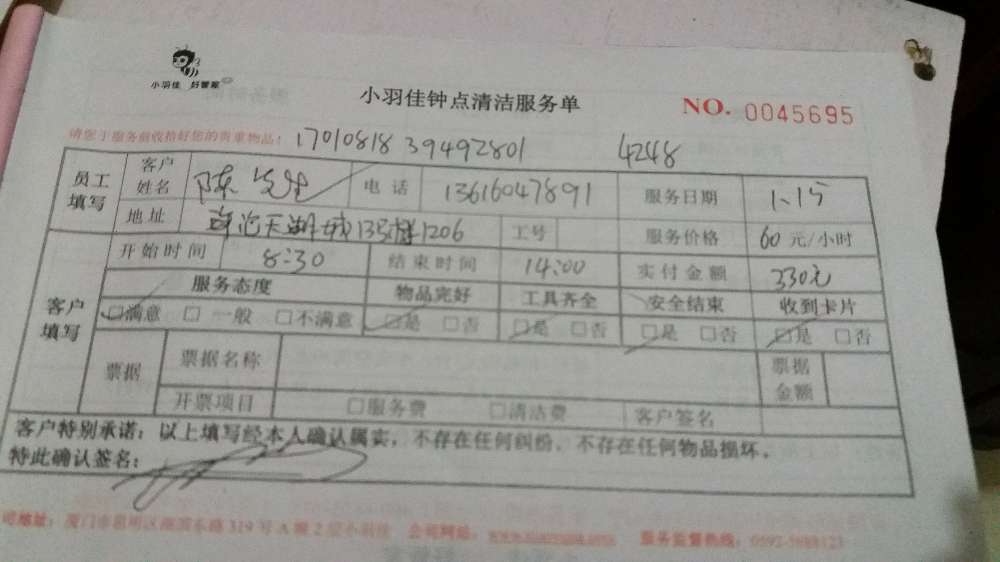 小羽佳 好管家
小羽佳钟点清洁服务单
NO. 0045695
请您于服务前收拾好您的贵重物品！
17010818 39492801 4248
员工填写 客户姓名 陈先生 电话 13616047891 服务日期 1.15
地址 天湖城 1206 工号 服务价格 60元/小时
客户填写 开始时间 8:30 结束时间 14:00 实付金额 330元
服务态度 物品完好 工具齐全 安全结束 收到卡片
□满意 □一般 □不满意 □是 □否 □是 □否 □是 □否 □是 □否
票据 票据名称 票据金额
开票项目 □服务费 □清洁费 客户签名
客户特别承诺：以上填写经本人确认属实，不存在任何纠纷，不存在任何物品损坏。
特此确认签名：
司地址：厦门市思明区湖滨东路319号A幢2层小羽佳 公司网站： 服务监督热线：